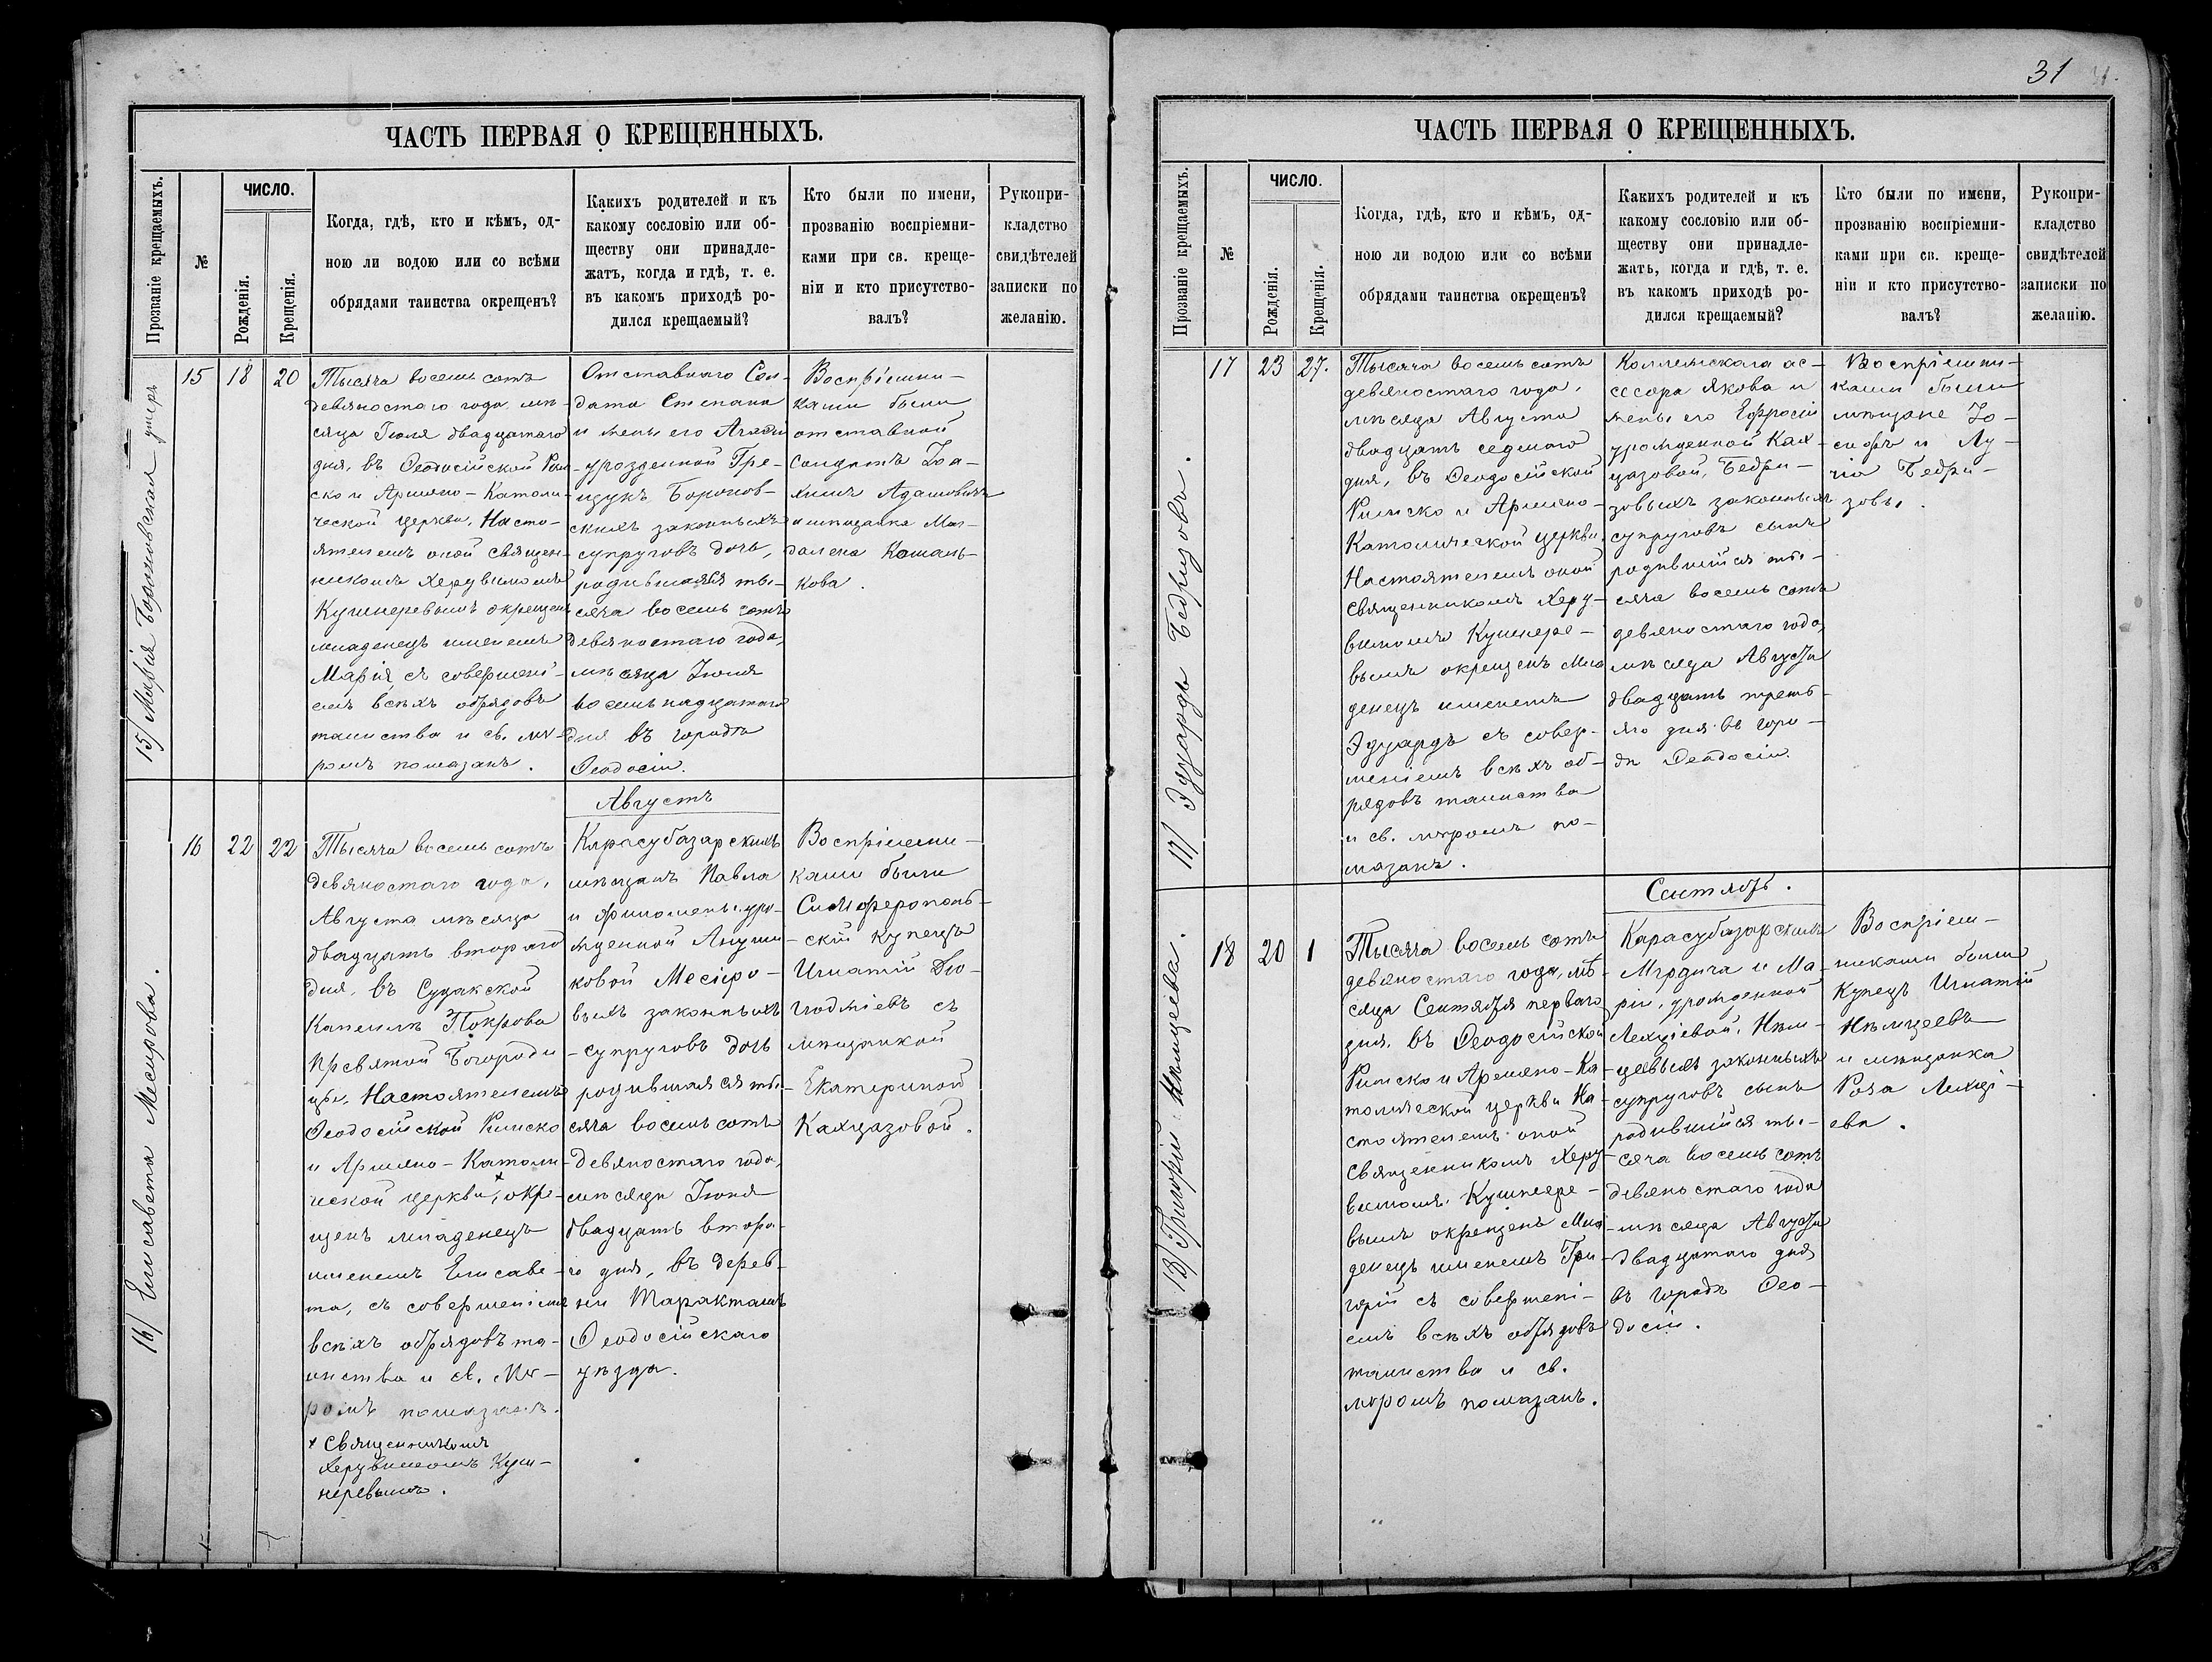 ЧАСТЬ ПЕРВАЯ О КРЕЩЕННЫХЪ.
Прозваніе крещаемыхъ.
№
ЧИСЛО.
Рожденія.
Крещенія.
Когда, гдѣ, кто и кѣмъ, од-
ною ли водою или со всѣми
обрядами таинства окрещенъ?
Какихъ родителей и къ
какому сословію или об-
ществу они принадле-
жатъ, когда и гдѣ, т. е.
въ какомъ приходѣ ро-
дился крещаемый?
Кто были по имени,
прозванію воспріемни-
ками при св. креще-
ніи и кто присутство-
валъ?
Рукопри-
кладство
свидѣтелей
записки по
желанію.
15/ Марія Бороновская умеръ
15 18 20
Тысяча восемь сотъ
девяностаго года мѣ-
сяца Іюля двадцатаго
дня, въ Ѳеодосійской Рим-
ско и Армяно-Католи-
ческой церкви, Насто-
ятелемъ оной священ-
никомъ Херувимомъ
Кушнеревымъ окрещенъ
младенецъ именемъ
Марія, съ совершені-
емъ всѣхъ обрядовъ
таинства и св. мѵ-
ромъ помазанъ.
Отставного Сол-
дата Степана
и жены его Агафіи
урозденной Гре-
цукъ Боронов-
скихъ законныхъ
супруговъ дочь,
родившаяся ты-
сяча восемь сотъ
девяностаго года,
мѣсяца Іюля
восемьнадцатаго
дня въ городѣ
Ѳеодосіи.
Воспріемни-
ками были
отставной
Солдатъ Іоа-
химъ Адамовичъ
и мѣщанка Маг-
далена Кошань-
кова.
Августъ
16/ Елисавета Месирова.
16 22 22
Тысяча восемь сотъ
девяностаго года,
Августа мѣсяца
двадцать втораго
дня, въ Судакской
Капеллѣ Покрова
Прсвятой Богороди
цы, Настоятелемъ
Ѳеодосійской Римско
и Армяно-Католи-
ческой церкви,+ окре-
щенъ младенецъ
именемъ Елисаве-
та, съ совершеніемъ
всѣхъ обрядовъ та-
инства и св. Мѵ-
ромъ помазанъ.
+ Священникомъ
Херувимомъ Куш-
неревымъ.
Карасубазарскихъ
мѣщанъ Павла
и Филомены уро-
жденной Ануш
ковой Месиро-
выхъ законныхъ
супруговъ дочь
родившаяся ты-
сяча восемь сотъ
девяностаго года,
мѣсяца Іюня
двадцать втора-
го дня, въ дерев-
ни Таракташъ
Ѳеодосійскаго
уѣзда.
Воспріемни-
ками были
Симферополь-
скій купецъ
Игнатій Дю-
годжіевъ съ
мѣщанкой
Екатериной
Кахцазовой.
31
ЧАСТЬ ПЕРВАЯ О КРЕЩЕННЫХЪ.
Прозваніе крещаемыхъ.
№
ЧИСЛО.
Рожденія.
Крещенія.
Когда, гдѣ, кто и кѣмъ, од-
ною ли водою или со всѣми
обрядами таинства окрещенъ?
Какихъ родителей и къ
какому сословію или об-
ществу они принадле-
жатъ, когда и гдѣ, т. е.
въ какомъ приходѣ ро-
дился крещаемый?
Кто были по имени,
прозванію воспріемни-
ками при св. креще-
ніи и кто присутство-
валъ?
Рукопри-
кладство
свидѣтелей
записки по
желанію.
17/ Эдуардъ Бедризовъ.
17 23 27.
Тысяча восемь сотъ
девяностаго года,
мѣсяца Августа
двадцать седмого
дня, въ Ѳеодосійской
Римско и Армяно-
Католической церкви,
Настоятелемъ оной
священникомъ Херу-
вимомъ Кушнере-
вымъ окрещенъ Мла
денецъ именемъ
Эдуардъ съ совер-
шеніемъ всѣхъ об-
рядовъ таинства
и св. мѵромъ по-
мазанъ.
Коллежскаго ас-
сесора Якова и
жены его Ефросіи
урожденной Ках-
цазовой, Бедри-
зовыхъ законныхъ
супруговъ сынъ
родившійся ты-
сяча восемь сотъ
девяностаго года,
мѣсяца Августа
двадцать треть-
яго дня въ горо-
дѣ Ѳеодосіи.
Воспріемни-
ками были
мѣщане Іо-
сифъ и Лу-
чіа Бедри-
зовы.
Сентябрь.
18/ Григорій Нѣмцеева.
18 20 1
Тысяча восемь сотъ
девяностаго года, мѣ-
сяца Сентября перваго
дня, въ Ѳеодосійской
Римско и Армяно-Ка-
толической церкви На-
стоятелемъ оной
Священникомъ Херу-
вимомъ Кушнере-
вымъ окрещенъ Мла-
денецъ именемъ Гри-
горій съ совершені-
емъ всѣхъ обрядовъ
таинства и св.
мѵромъ помазанъ.
Карасубазарскихъ
Мгрдича и Ма-
ріи, урожденной
Лехціевой, Нѣм-
цеевыхъ законныхъ
супруговъ сынъ
родившійся ты-
сяча восемь сотъ
девяностаго года
мѣсяца Августа
двадцатаго дня
въ городѣ Ѳео-
досіи.
Воспріем-
никами были
Купецъ Игнатій
Нѣмцеевъ
и мѣщанка
Роза Лехці-
ева.